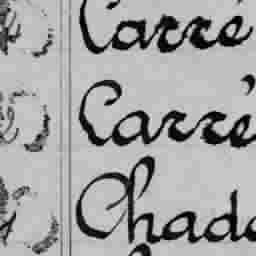 Carré
Carré
Chad